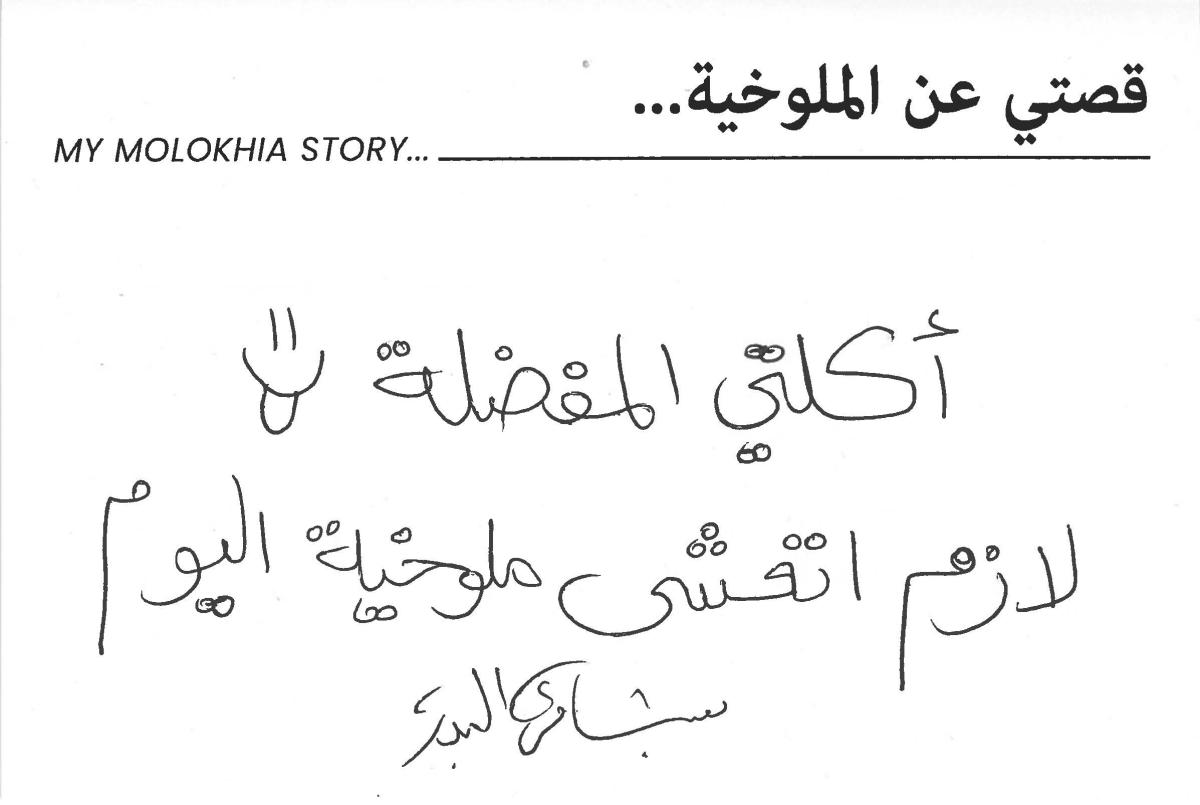 قصتي عن الملوخية...
MY MOLOKHIA STORY...
أكلتي المفضلة
لازم اتعشى ملوخية اليوم